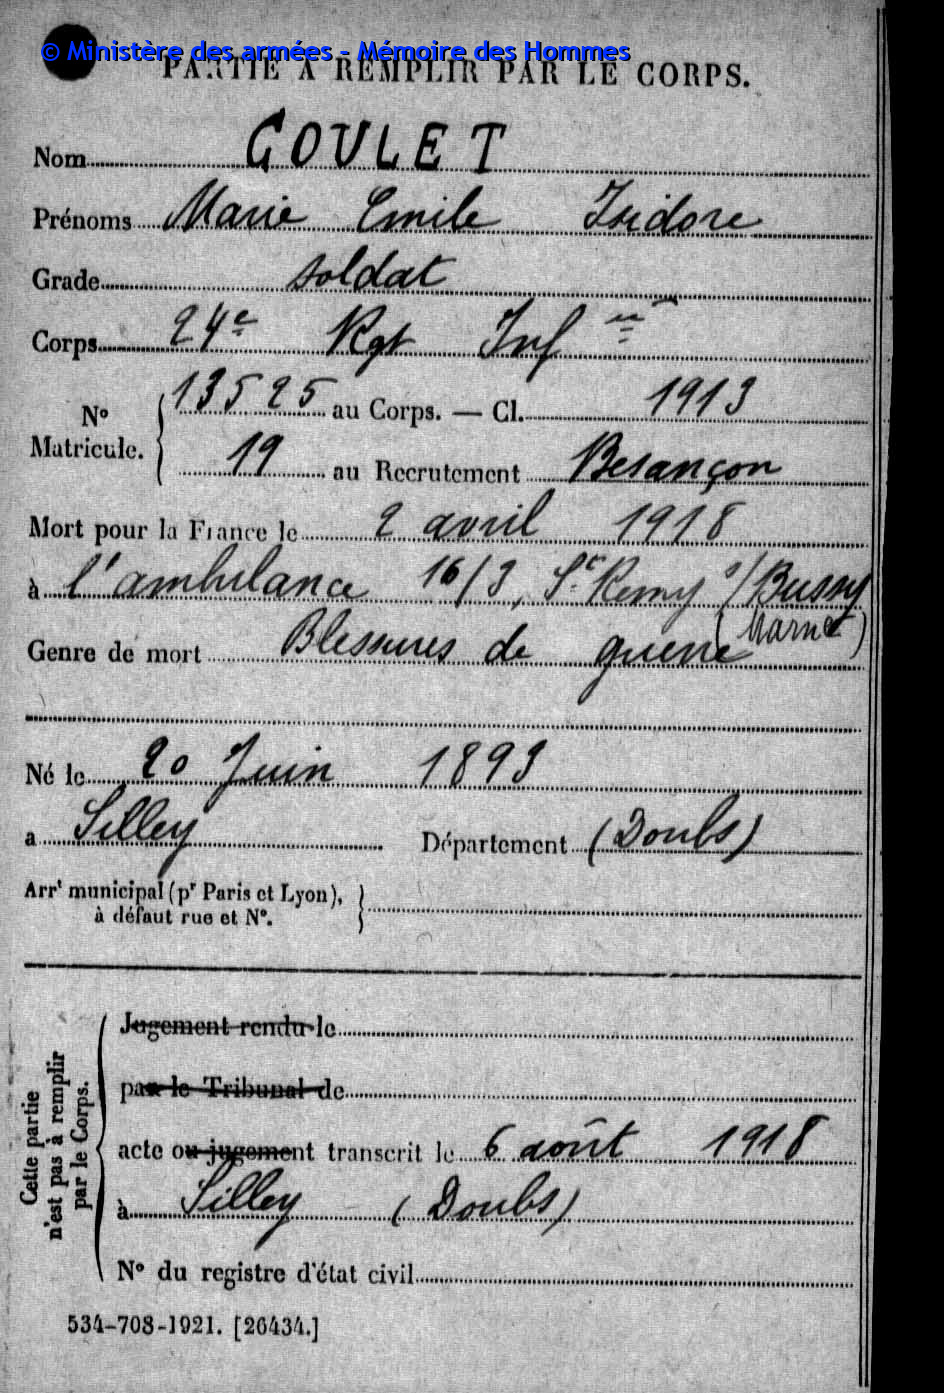 © Ministère des armées - Mémoire des Hommes
PARTIE A REMPLIR PAR LE CORPS.
Nom GOULET
Prénoms Marie Emile Isidore
Grade soldat
Corps 24e Rgt Inf ie
13525 au Corps. — Cl. 1913
N° Matricule.
19 au Recrutement Besançon
Mort pour la France le 2 avril 1918
à l'ambulance 16/3, St Remy s/Bussy
(Marne)
Genre de mort Blessures de guerre
Né le 20 Juin 1893
a Silley Département (Doubs)
Arrt municipal (pr Paris et Lyon),
à défaut rue et N°.
Cette partie n'est pas à remplir par le Corps.
Jugement rendu le
par le Tribunal de
acte ou jugement transcrit le 6 août 1918
à Silley (Doubs)
N° du registre d'état civil
534-708-1921. [26434.]